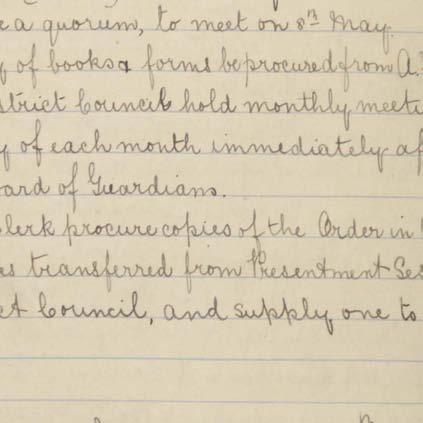 e a quorum, to meet on 8th May.
y of books & forms be procured from A.
strict Council hold monthly meeti
y of each month immediately af
oard of Guardians.
lerk procure copies of the Order in
as transferred from Presentment Ses
ct Council, and supply one to